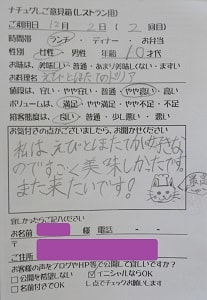 ナチュグレご意見箱(レストラン用)
ご利用日 12月 2日(2回目)
時間帯 ランチ・ディナー・お弁当
性別 女性 男性 年齢 10才代
お味は、美味しい・普通・あまり美味しくない・まずい
お料理名 えびとほたてのドリア
値段は、安い・やや安い・普通・やや高い・高い
ボリュームは、満足・やや満足・やや不足・不足
接客態度は、良い・普通・少し悪い・悪い
お気付きの点がございましたら、お聞かせください
私は、えびとほたてが好きな
のですごく美味しかったです。
また来たいです!
最高
宜しかったらご記入ください
お名前 様 電話 - -
〒
ご住所
お客様の声をブログやHP等で公開して宜しいですか?
□公開を希望しない ☑イニシャルならOK
□名前付きでOK レ点でチェックお願いします。